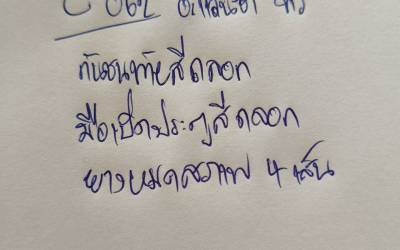 กันชนท้ายสีถลอก
มือเปิดประตูสีถลอก
ยางหมดสภาพ 4 เส้น